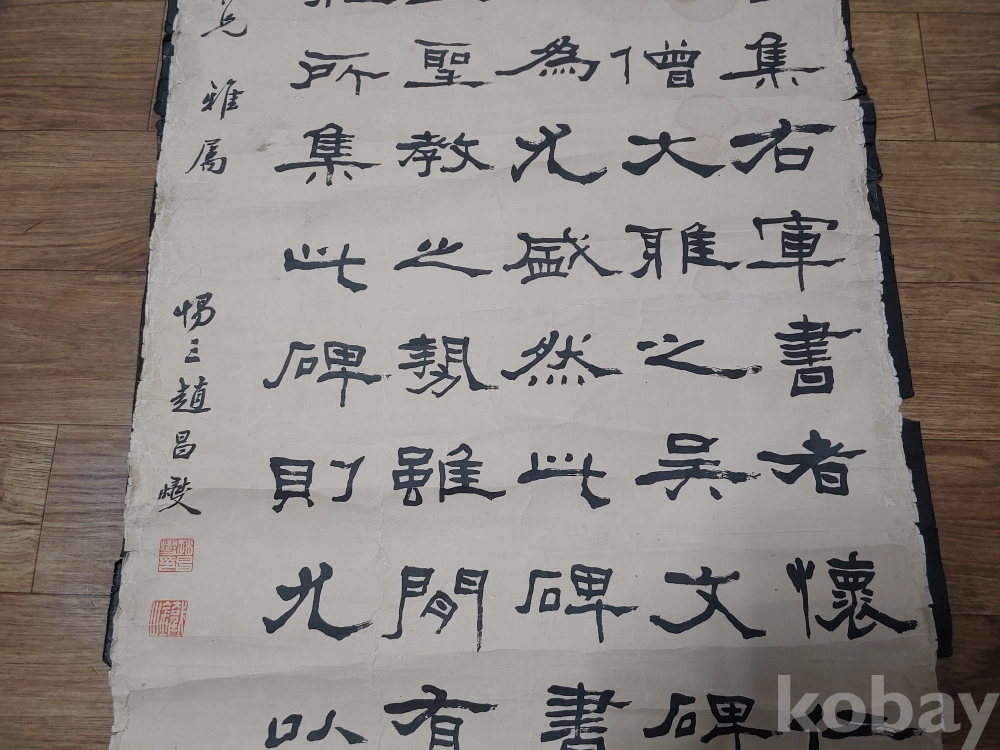 集右軍書者懷仁
僧大雅之吳文碑
為尤盛然此碑書
聖教之勢雖閒有
所集此碑則尤以
兄雅屬
惕三趙昌燮
kobay